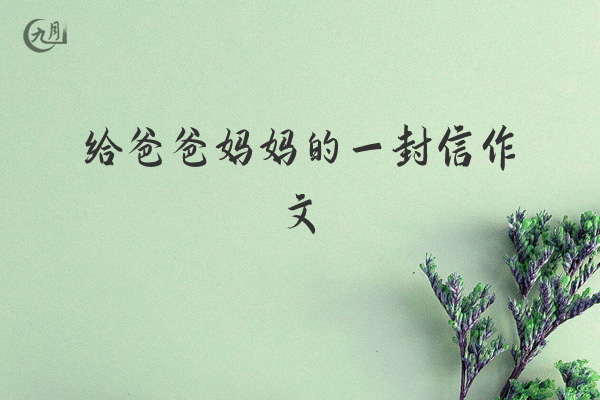 九月
给爸爸妈妈的一封信作
文